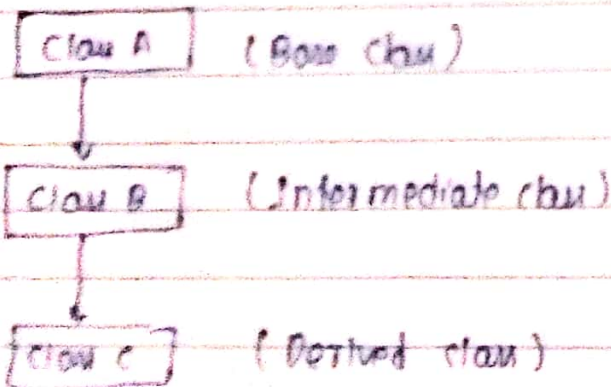 Class A (Base class)
Class B (Intermediate class)
Class C (Derived class)